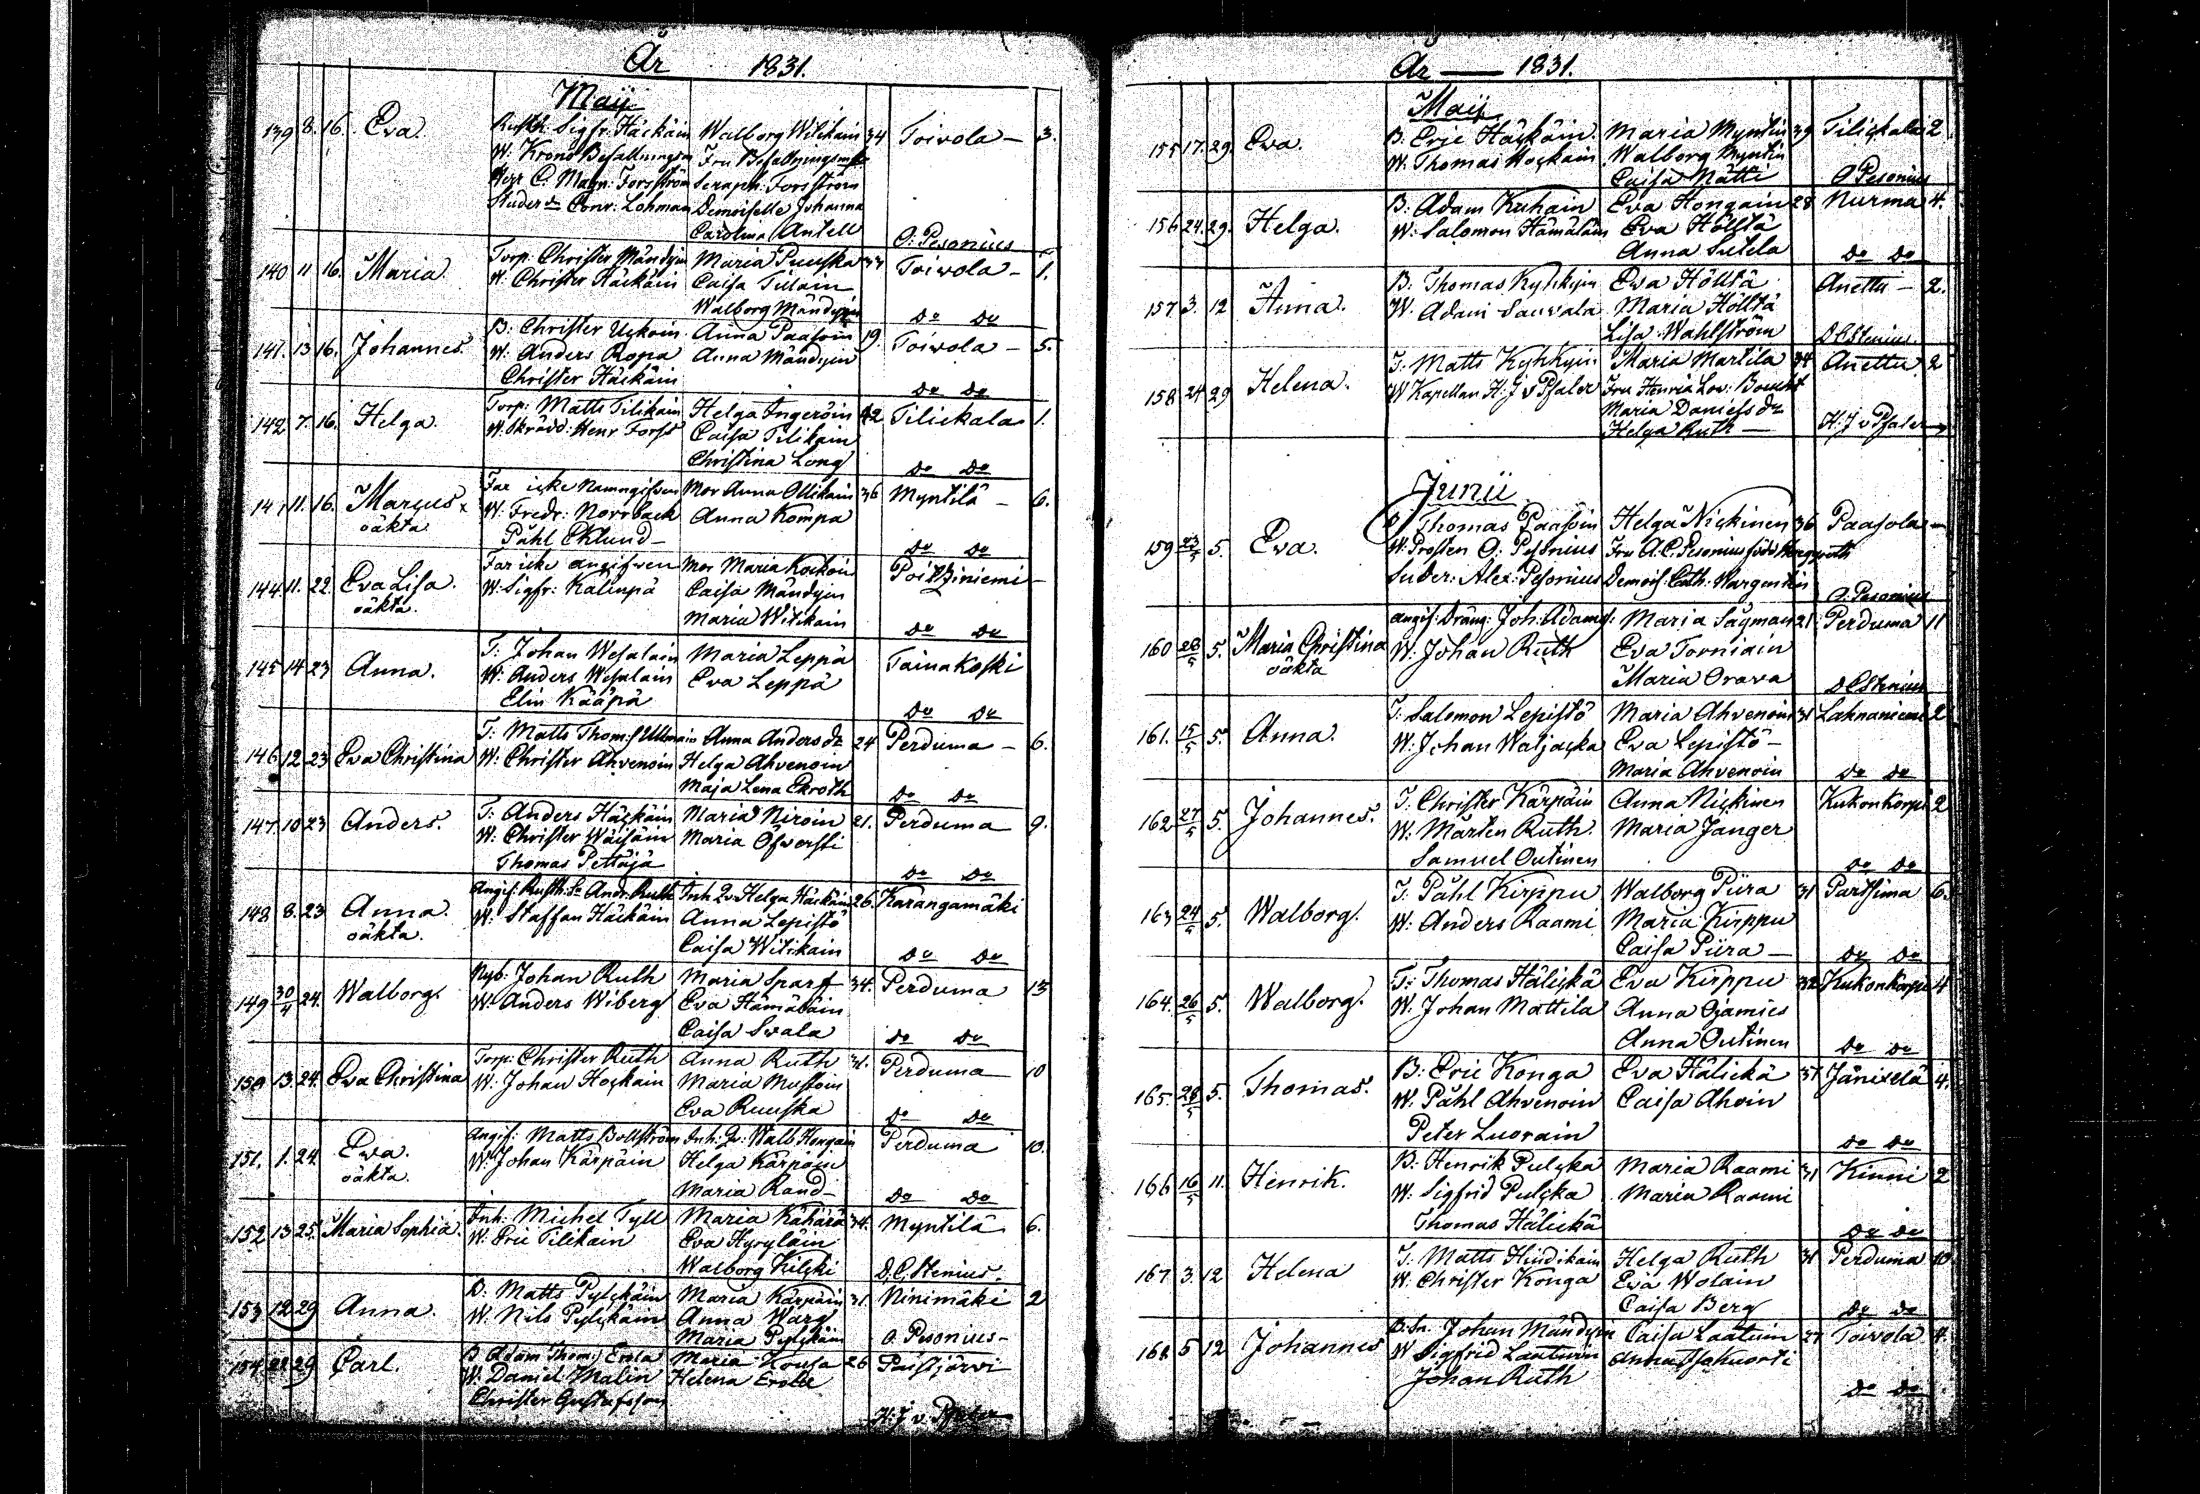 År 1831.
Maij
139 8. 16. Eva. Rusth. Sigfr: Häckäin Walborg Witikain 34 Toivola — 3.
W: Krono Befallningsm Fru Befallningsm
Herr C. Magn: Forsström Seraph: Forsström
Studer de Conr: Lohman Demoiselle Johanna
Carolina Antell O: Pesonius
140 11 16. Maria. Torp: Christer Mändyin Maria Puuska 33 Toivola — 1.
W: Christer Häckäin Caisa Tilain
Walborg Mändyin Do Do
141. 13 16. Johannes. B: Christer Uckoin Anna Paasoin 19. Toivola — 5.
W: Anders Ropa Anna Mändyin
Christer Häckäin Do Do
142 7. 16. Helga. Torp: Matts Tilikain Helga Ingeröin 42 Tilickala 1.
W. Skrädd: Henr Forss Caisa Tilikain
Christina Long Do Do
11. 16. Marcus oäkta Far icke Namngifven Mor Anna Ollikain 36 Myntilä — 6.
W: Fredr: Norrback Anna Kompa
Påhl Eklund — Do Do
144 11. 22. Eva Lisa. oäkta. Far icke angifven Mor Maria Kockoin
W: Sigfr: Kälinpä Caisa Mändyin
Maria Witikain Do Do
145 14 23 Anna. T: Johan Wesalain Maria Leppä Tainakoski
W: Anders Wesalain Eva Leppä
Elin Kääpä Do Do
146 12 23 Eva Christina T: Matts Thoms: Ullmain Anna Anders dr 24 Perduma — 6.
W: Christer Ahvenoin Helga Ahvenoin
Maja Lena Ekroth Do Do
147. 10 23 Anders. T: Anders Häckäin Maria Niroin 21. Perduma 9.
W: Christer Wäisäin Maria Öfversti
Thomas Pettäjä Do Do
148 8. 23 Anna. oäkta. Angif: Rusth: Sn Andr: Ruth Inh. Qv. Helga Häckäin 26. Karangamäki
W: Staffan Häckäin Anna Lepistö
Caisa Witikain Do Do
149 30/4 24. Walborg. Nyb: Johan Ruth Maria Sparf 34. Perduma 13
W: Anders Wiberg Eva Hämäläin
Caisa Swala Do Do
150 13. 24. Eva Christina Torp: Christer Ruth Anna Ruth 31. Perduma 10
W: Johan Hockain Maria Mustoin
Eva Ruuska Do Do
151. 1. 24. Ewa. oäkta. Angif: Matts Bollström Inh: Q: Walb Hongain Perduma 10.
W: Johan Kärpäin Helga Kärpäin
Maria Rand — Do Do
152 13 25. Maria Sophia. Inh: Michel Tyll Maria Kähärä 34. Myntilä 6.
W: Eric Tilikain Eva Hyryläin
Walborg Kilcki D. C. Stenius.
153 12 29 Anna. B: Matts Pylckäin Maria Kärpäin 31 Ninimäki 2
W. Nils Pylckäin Anna Warg
Maria Pylckäin O. Pesonius —
154 22 29 Carl. B Adam Thoms Erola Maria 26
W. Daniel Malin Helena Erola
Christer Gustafsson H: J v. Pfaler
År — 1831.
Maij
155 17. 29. Eva. B: Eric Häckäin. Maria Myntin 39 Tilickala 2
W: Thomas Hockain Walborg Myntin
Caisa Mätti O Pesonius
156 24. 29. Helga. B: Adam Kuhain Eva Hongain 28 Nurma 4.
W: Salomon Hämäläin Eva Hölttä
Anna Sutela Do Do
157 3. 12 Anna. B: Thomas Kyhkyin Ewa Hölttä Anettu — 2.
W. Adam Sauvala Maria Hölttä
Lisa Wahlström D C Stenius.
158 24 29 Helena. T: Matts Kyhkyin Maria Martila 34 Anettu 2
W Kapellan H: J v Pfaler Fru Henrica Lov:
Maria Daniels dr
Helga Ruth — H: J v Pfaler
Junii
159 23/5 5. Eva. Thomas Paasoin Helga Nickinen 36 Paasola
W. Prosten O: Pesonius Fru A. C. Pesonius född
Studer: Alex: Pesonius Demois: Cath: Wargentin O: Pesonius
160 28/5 5. Maria Christina oäkta angif: Dräng: Joh: Adams: Maria Säyman 21 Perduma 11
W: Johan Ruth Eva Torniain
Maria Orava D C Stenius
161. 15/5 5. Anna. T: Salomon Lepistö Maria Ahvenoin 31 Lahnaniemi 2
W: Johan Waljacka Eva Lepistö —
Maria Ahvenoin Do Do
162 27/5 5. Johannes. T. Christer Kärpäin Anna Nickinen Kukonkorpi 2
W. Mårten Ruth. Maria Janger
Samuel Outinen Do Do
163 24/5 5. Walborg. T: Påhl Kirppu Walborg Piira 31 Partsima 6.
W: Anders Raami Maria Kirppu
Caisa Piira — Do Do
164. 26/5 5. Walborg. T: Thomas Hälickä Eva Kirppu 32 Kukonkorpi 4
W. Johan Mattila Anna Ojamies
Anna Outinen Do Do
165. 28/5 5. Thomas. B: Eric Konga Eva Hälickä 37 Jänixelä 4.
W. Påhl Ahvenoin Caisa Ahoin
Peter Luorain Do Do
166 16/5 11. Henrik. B: Henrik Pulcka Maria Raami 31 Kinni 2
W. Sigfrid Pulcka Maria Raami
Thomas Hälickä Do Do
167 3. 12 Helena T: Matts Hindikain Helga Ruth 31 Perduma 10
W. Christer Konga Eva Wolain
Caisa Berg Do Do
168 5 12 Johannes B. Sn. Johan Mändyin Caisa Laatuin 27 Toivola 4.
W Sigfrid Laatuin Anna
Johan Ruth Do Do